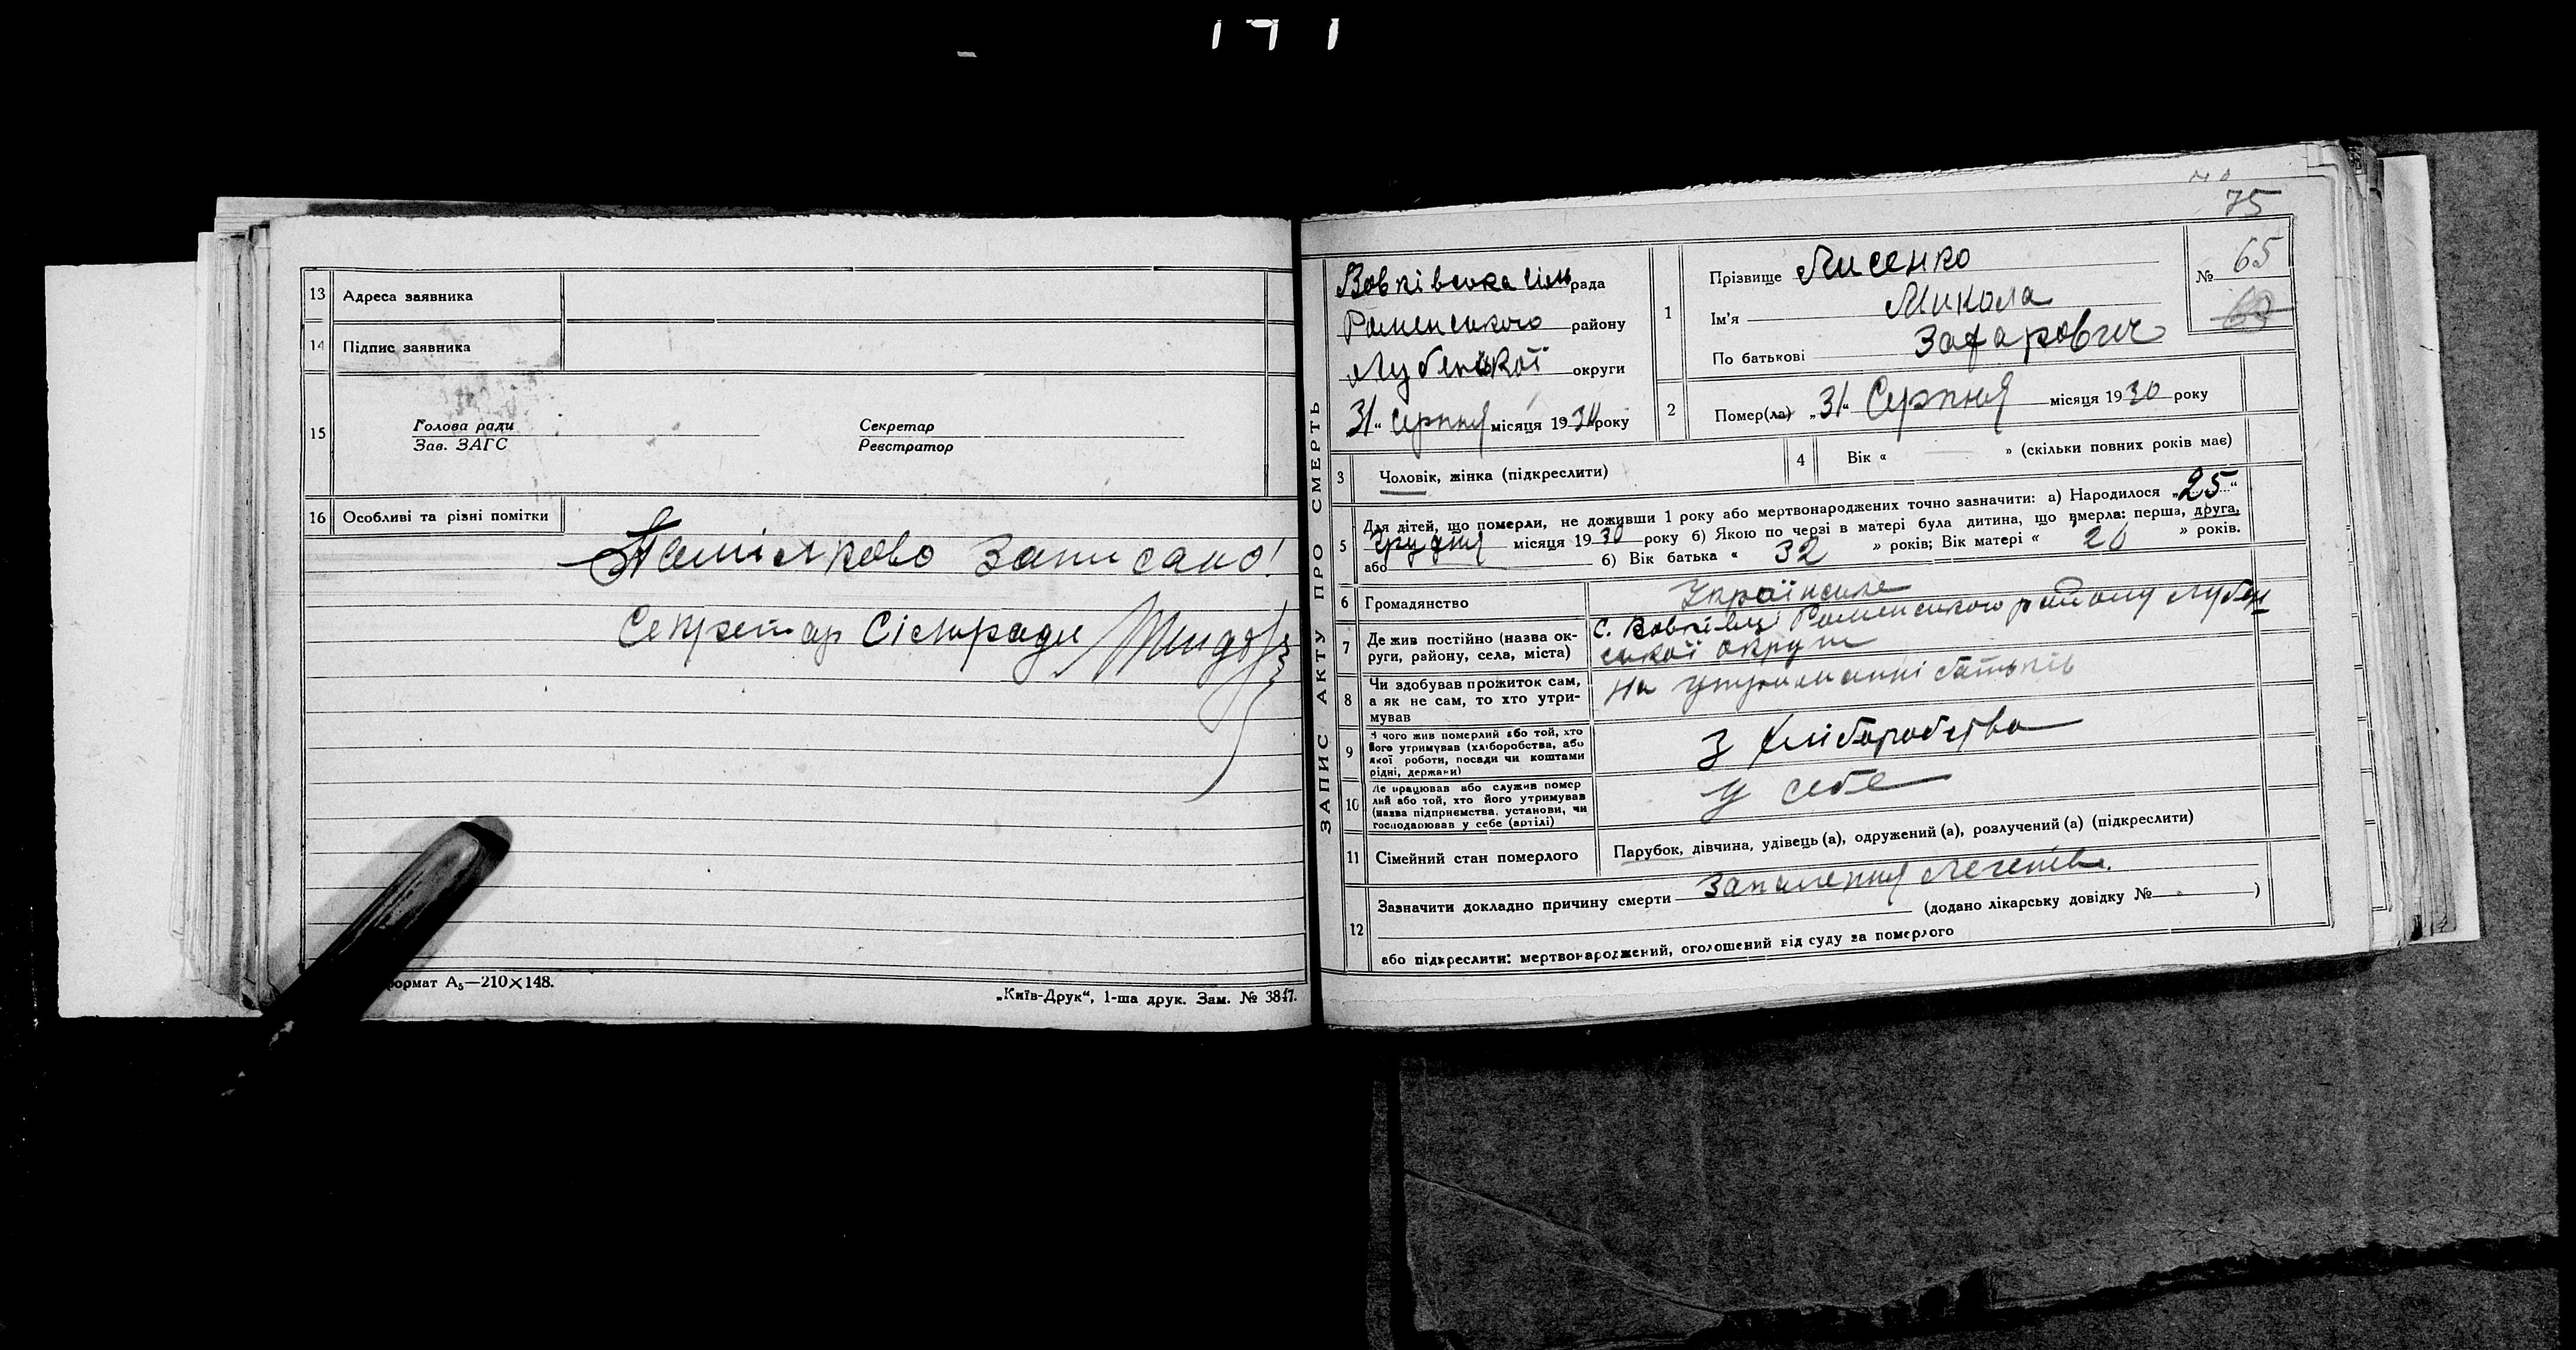 13 Адреса заявника
14 Підпис заявника
15 Голова ради
Зав. ЗАГС
Секретар
Реєстратор
16 Особливі та різні помітки
Помілково Записано!
Секретар Сільради
формат А₅—210×148.
„Київ-Друк“, 1-ша друк. Зам. № 3847.
75
ЗАПИС АКТУ ПРО СМЕРТЬ
Вовківська сіль рада
Роменського району
Лубенської округи
31 „ серпня місяця 1930 року
1 Прізвище Лисенко
Ім'я Микола
По батькові Захарович
№ 65
2 Помер(ла) „31“ Серпня місяця 1930 року
3 Чоловік, жінка (підкреслити)
4 Вік « » (скільки повних років має)
5 Для дітей, що померли, не доживши 1 року або мертвонароджених точно зазначити: а) Народилося „25“
Грудня місяця 1930 року б) Якою по черзі в матері була дитина, що вмерла: перша, друга,
або б) Вік батька « 32 » років; Вік матері « 26 » років.
6 Громадянство Українське
7 Де жив постійно (назва округи, району, села, міста) с. Вовківці Роменського району Лубен
ської округи
8 Чи здобував прожиток сам, а як не сам, то хто утримував На утриманні батьків
9 З чого жив померлий або той, хто його утримував (хліборобства, або якої роботи, посади чи коштами рідні, держави) З хліборобства
10 Де працював або служив помер лий або той, хто його утримував (назва підприємства, установи, чи господарював у себе (артілі) У себе
11 Сімейний стан померлого Парубок, дівчина, удівець (а), одружений (а), розлучений (а) (підкреслити)
12 Зазначити докладно причину смерти Запалення легенів.
(додано лікарську довідку № )
або підкреслити: мертвонароджений, оголошений від суду за померлого